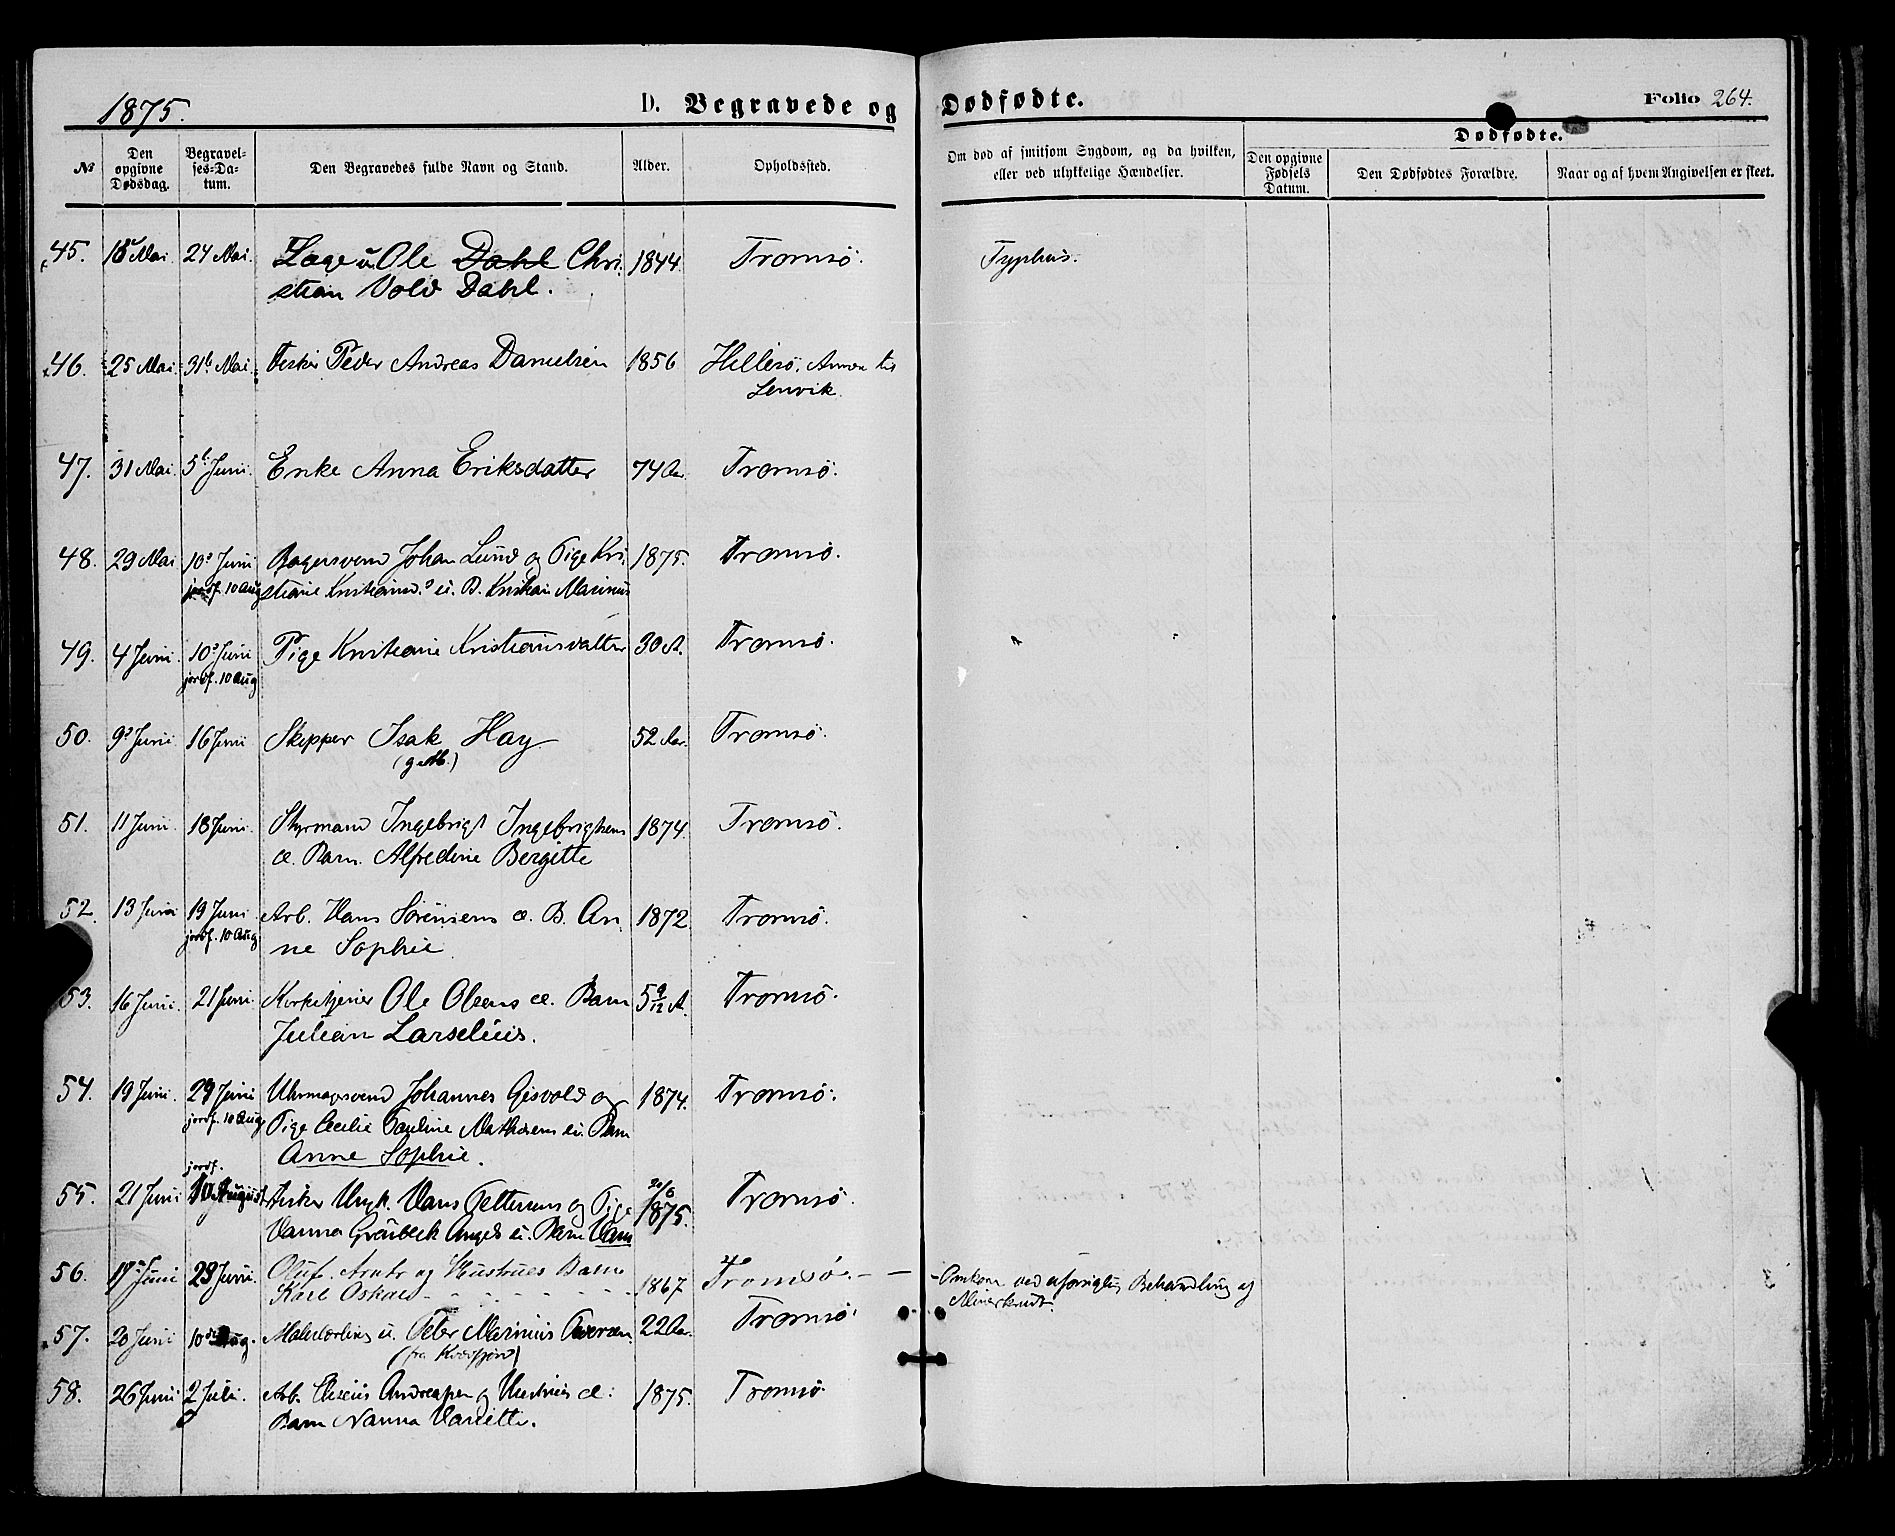 1875.
D. Begravede og Dødfødte.
Folio 264.
Dødfødte.
№ Den opgivne Dødsdag. Begravelses-Datum. Den Begravedes fulde Navn og Stand. Alder. Opholdssted. Om død af smitsom Sygdom, og da hvilken, eller ved ulykkelige Hændelser. Den opgivne Fødsels Datum. Den Dødfødtes Forældre. Naar og af hvem Angivelsen er skeet.
45. 18 Mai 24 Mai. Læge u. Ole Dahl Chri- 1844. Tromsø. Typhus.
stian Vold Dahl.
46. 25 Mai 31te Mai. Fisker Peder Andreas Danielsen 1856 Hillesø. Annex til
Lenvik.
47. 31 Mai 5t Juni. Enke Anna Eriksdatter 74 Aar Tromsø.
48. 29 Mai 10de Juni Bagersvend Johan Lund og Pige Kri- 1875. Tromsø.
jordf. 10 Aug stiane Kristiansd. u. B. Kristian Marinus
49. 4 Juni. 10de Juni Pige Kristiane Kristiansdatter 30 A. Tromsø.
jordf. 10 Aug
50. 9de Juni 16 Juni Skipper Isak Hay 52 Aar. Tromsø.
(g. M.)
51. 11 Juni. 18 Juni. Styrmand Ingebrigt Ingebrigtsens 1874. Tromsø.
æ. Barn Alfredine Bergitte
52. 13 Juni 19 Juni. Arb. Hans Sørensens æ. B. An- 1872. Tromsø.
jordf. 10 Aug ne Sophie.
53. 16 Juni. 21 Juni. Kirketjener Ole Olsens æ. Barn 5 9/12 A. Tromsø.
Julian Larselius.
54. 19 Juni. 29 Juni Uhrmagersvend Johannes Gisvold og 1874. Tromsø.
jordf. 10 Aug Pige Cecilie Pauline Mathisens u. Barn
Anne Sophie.
jordf.
55. 21 Juni 10 August Fisker Ungk. Hans Pettersens og Pige 20/6 1875. Tromsø.
Hanna Grønbeck Angels u. Barn Hans
56. 17de Juni 29 Juni. Oluf Arntz og Hustrues Barn Tromsø. - - - Omkom ved uforsigtig Behandling af
Karl Oskar 1867 Minerkrudt.
57. 20 Juni 10de Aug. Malerlærling u. Peter Marinius 22 Aar. Tromsø.
(fra Kvæfjord)
58. 26 Juni 2 Juli. Arb. Andreassen og Hustrues æ. 1875. Tromsø
Barn Nanna Hariette.